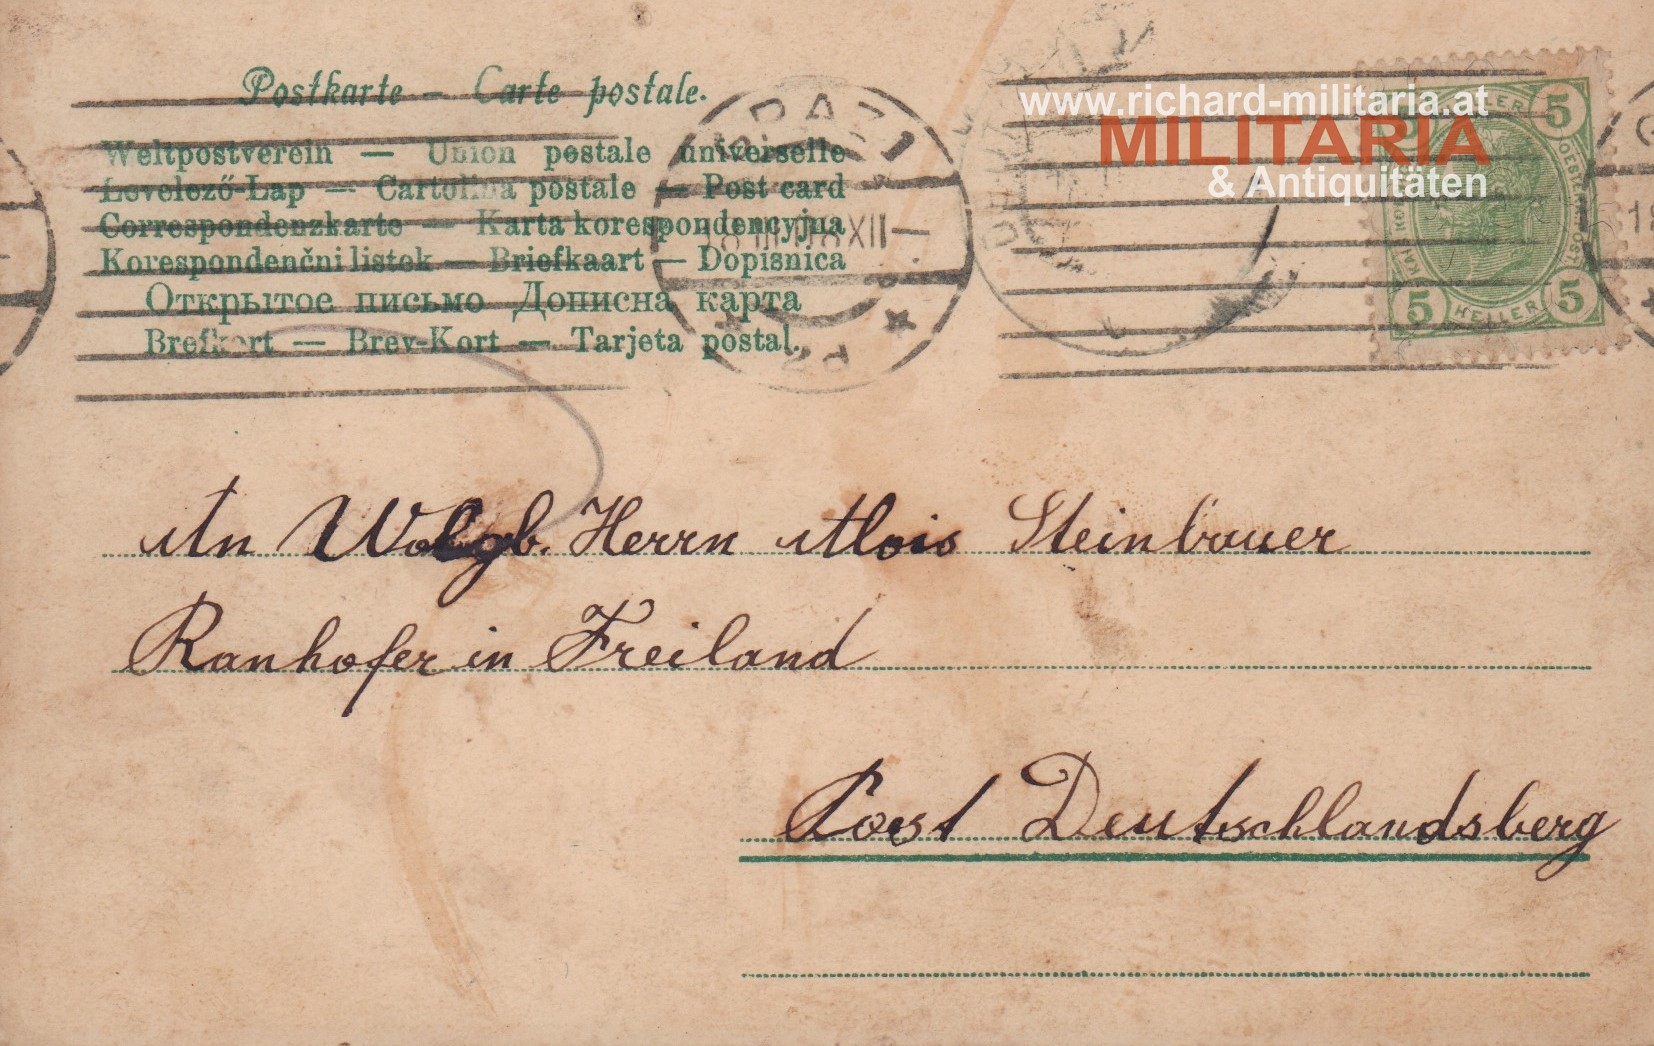 Postkarte — Carte postale.
Weltpostverein — Union postale universelle
Levelező-Lap — Cartolina postale — Post card
Correspondenzkarte — Karta korespondencyjna
Korespondenčni listek — Briefkaart — Dopisnica
Открытое письмо Дописна карта
Brefkort — Brev-Kort — Tarjeta postal.
www.richard-militaria.at
MILITARIA
& Antiquitäten
5
5 5
HELLER
XII
An Wolgb. Herrn Alois Steinbauer
Ranhofer in Freiland
Post Deutschlandsberg